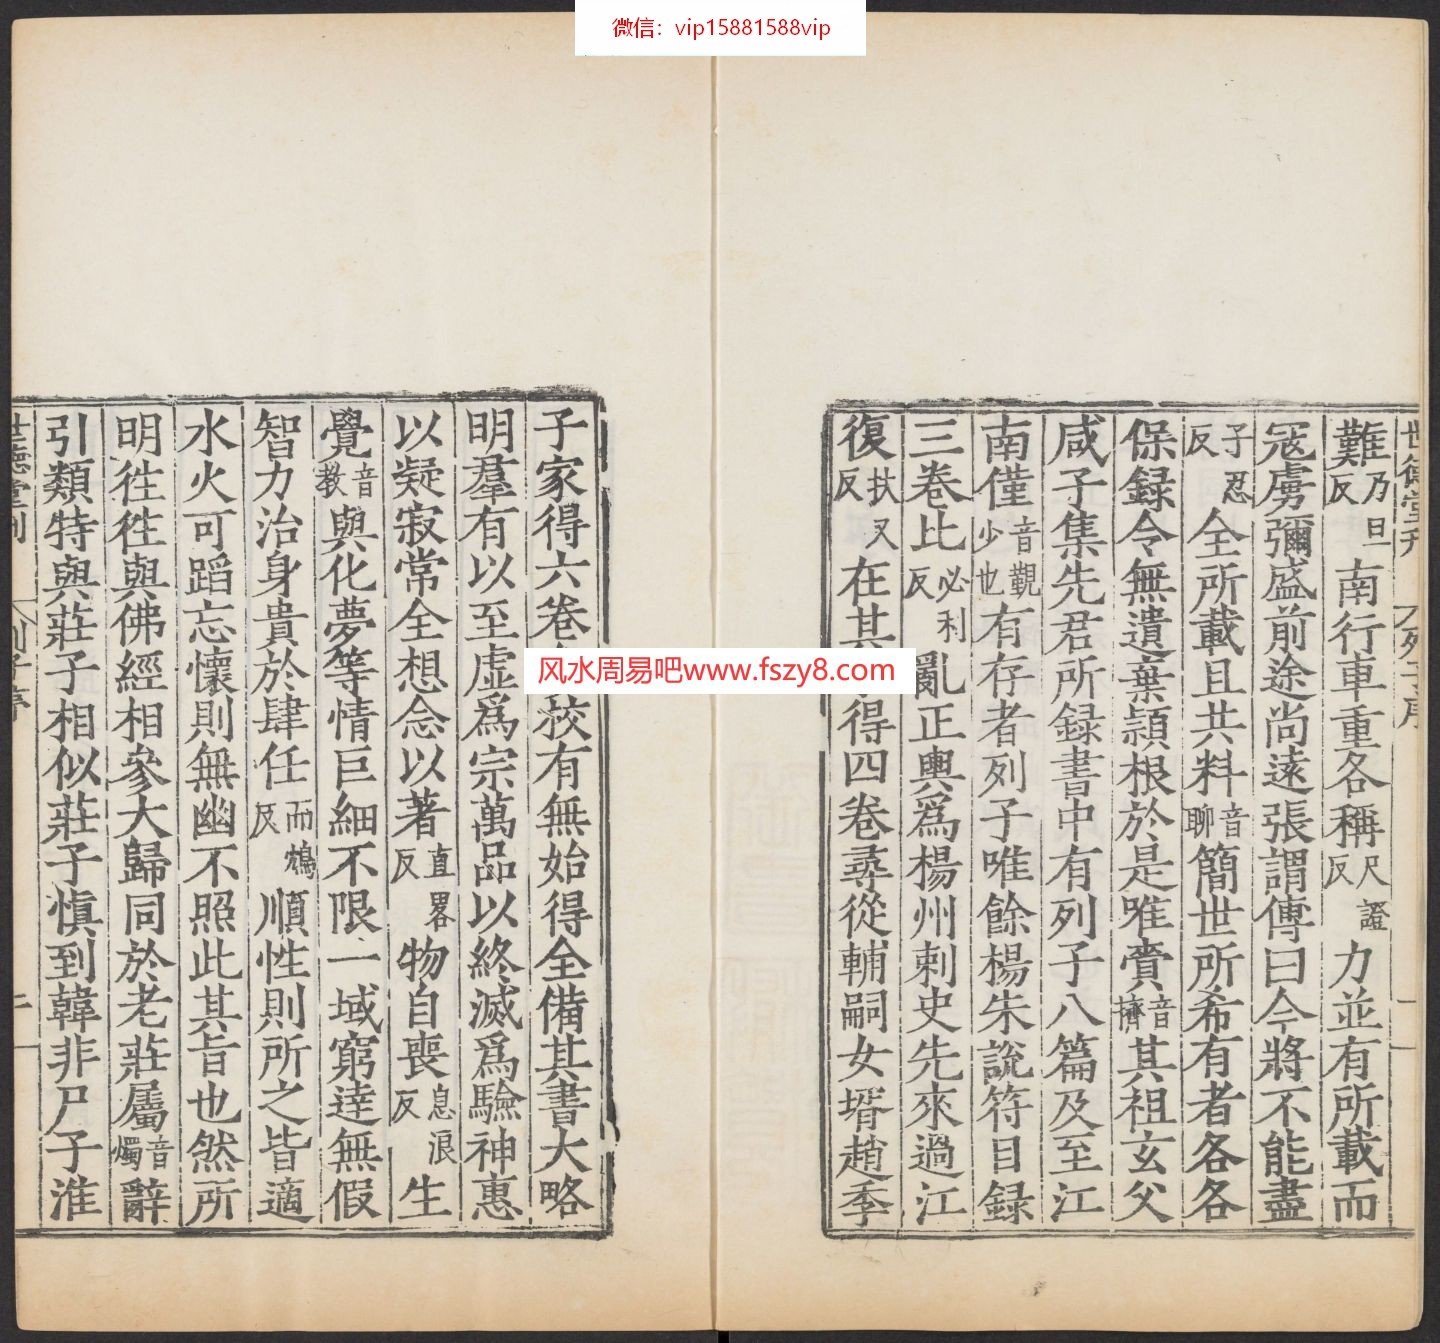 微信：vip15881588vip
世德堂刊 列子序 一
難乃旦反南行車重各稱尺證反力並有所載而
寇虜彌盛前途尚遠張謂傅曰今將不能盡
子忍反全所載且共料音聊簡世所希有者各各
保録令無遺棄頴根於是唯賫音擠其祖玄父
咸子集先君所録書中有列子八篇及至江
南僅音覲少也有存者列子唯餘楊朱説符目録
三卷比必利反亂正輿爲楊州刺史先來過江
復扶又反在其得四卷尋從輔嗣女壻趙季
風水周易吧www.fszy8.com
子家得六卷校有無始得全備其書大略
明羣有以至虛爲宗萬品以終滅爲驗神惠
以凝寂常全想念以著直畧反物自喪息浪反生
覺音教與化夢等情巨細不限一域窮達無假
智力治身貴於肆任而鴆反順性則所之皆適
水火可蹈忘懷則無幽不照此其旨也然所
明徃徃與佛經相參大歸同於老莊屬音燭辭
引類特與莊子相似莊子慎到韓非尸子淮
世德堂刊 列子序 二